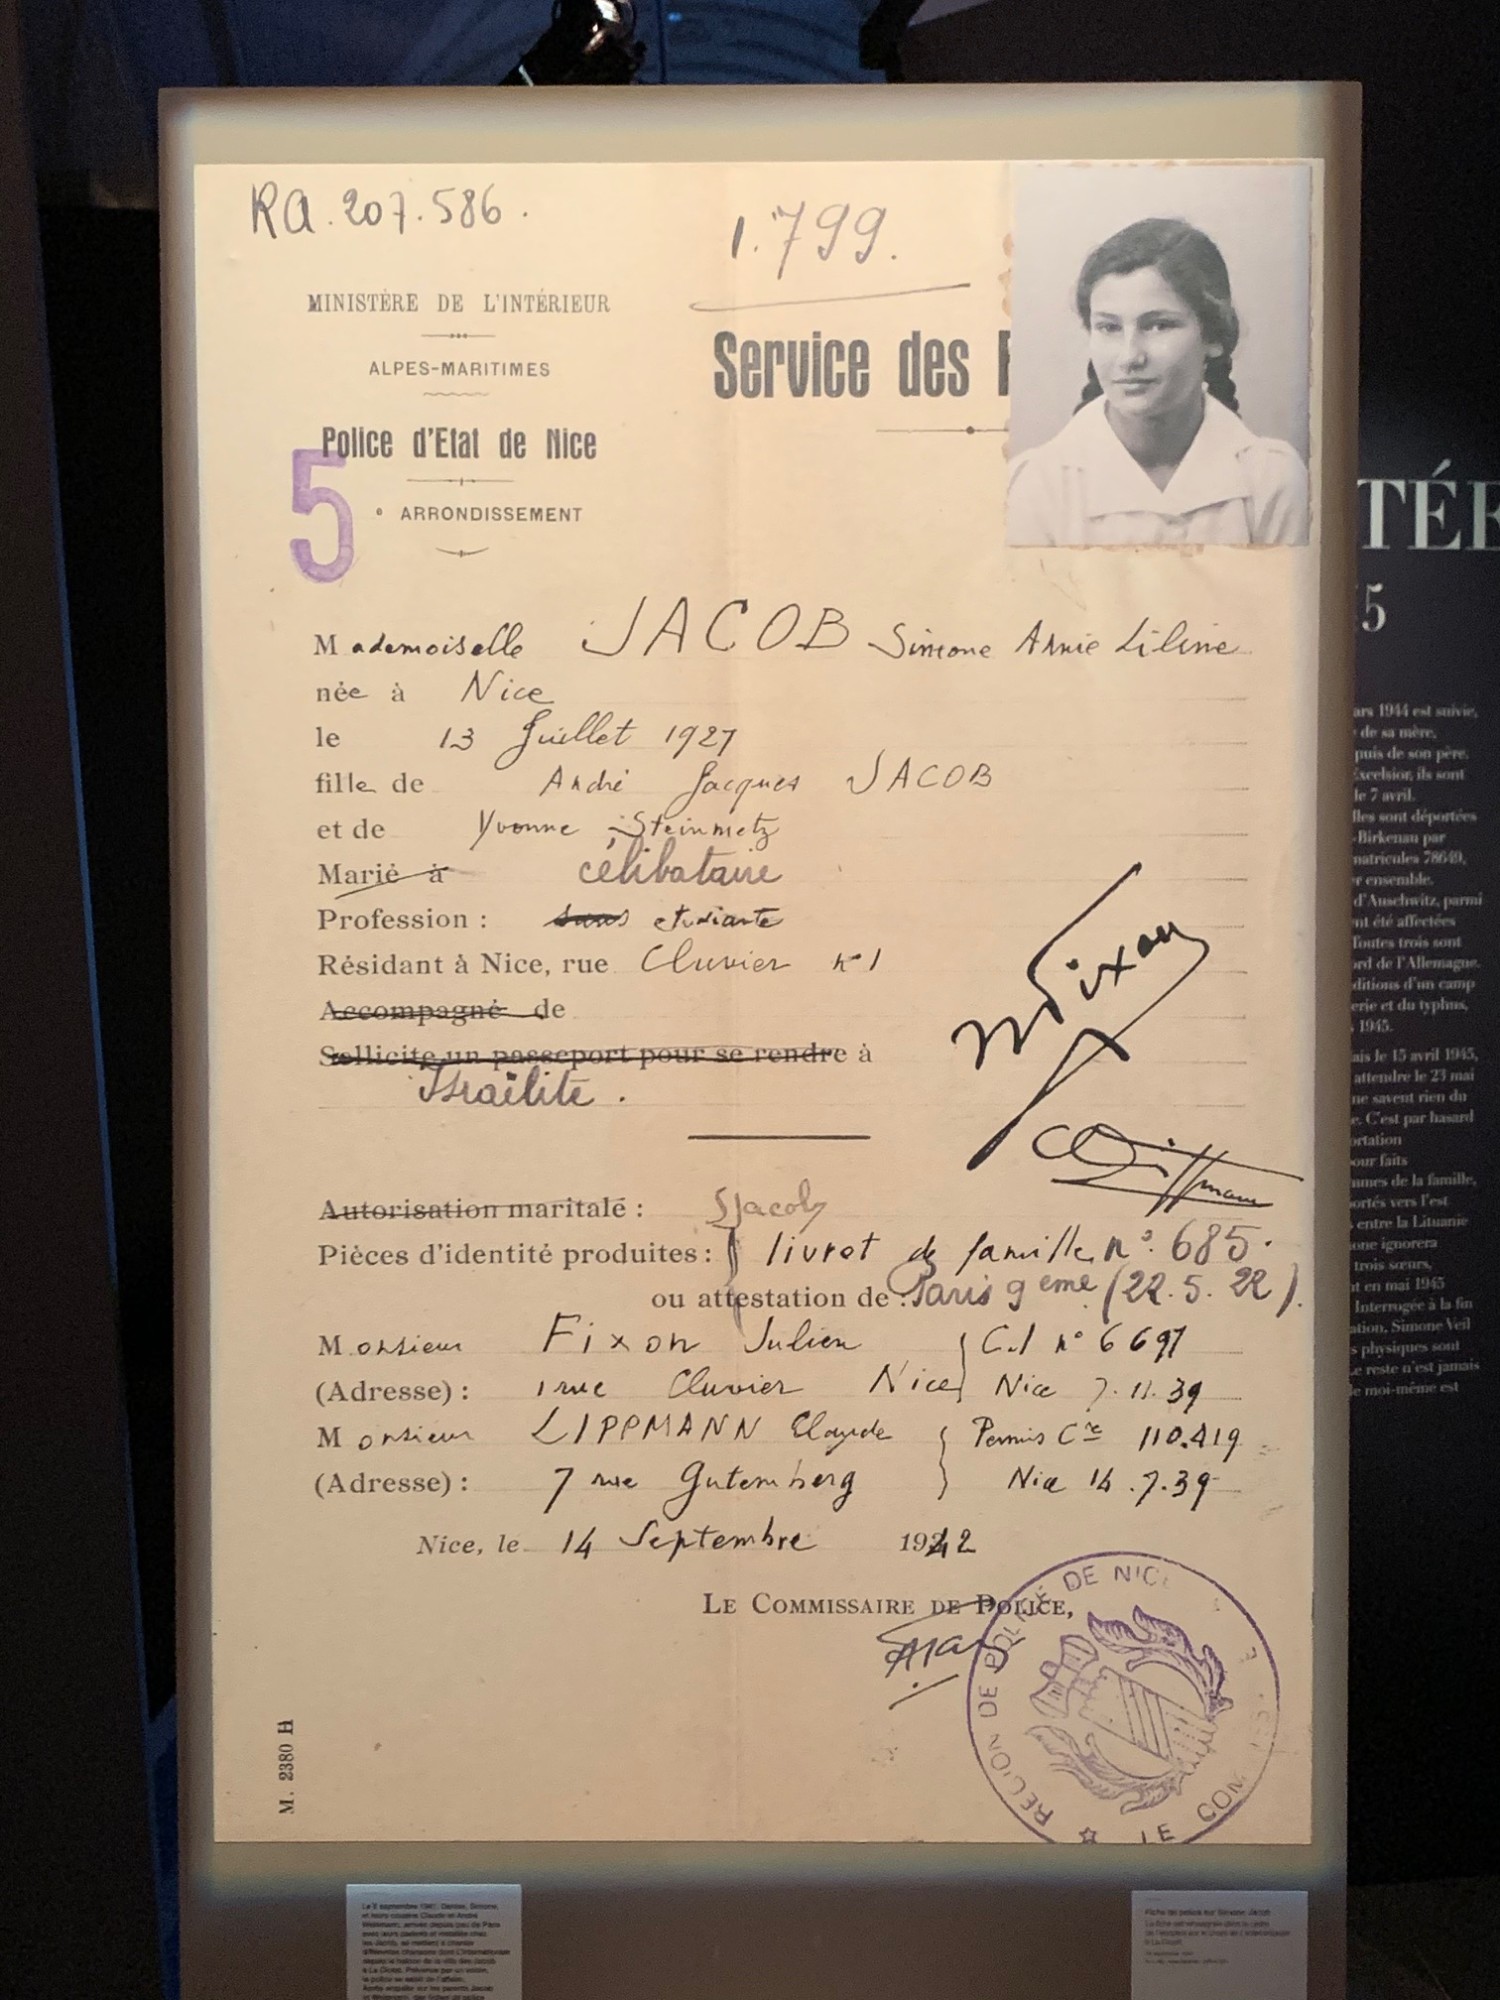 RA.207.586.
1.799.
MINISTÈRE DE L'INTÉRIEUR
ALPES-MARITIMES
Service des P
Police d'Etat de Nice
5
° ARRONDISSEMENT
Mademoiselle JACOB Simone Annie Liline
née à Nice
le 13 Juillet 1927
fille de André Jacques JACOB
et de Yvonne Steinmetz
Marié à célibataire
Profession : sans etudiante
Résidant à Nice, rue Cluvier n° 1
Accompagné de
Sollicite un passeport pour se rendre à
Israëlite.
Fixon
Autorisation maritale : SJacob
Pièces d'identité produites : livret de famille n°. 685.
ou attestation de : Paris 9eme (22.5.22).
Monsieur Fixon Julien } C.I n° 6697
(Adresse) : 1 rue Cluvier Nice } Nice 7.11.39
Monsieur LIPPMANN Claude } Permis Cre 110.419
(Adresse) : 7 rue Gutemberg } Nice 14.7.39
Nice, le 14 Septembre 1942
LE COMMISSAIRE DE POLICE,
RÉGION DE POLICE DE NICE
LE COM
M. 2380 H
TÉE
5
ars 1944 est suivie,
de sa mère,
puis de son père.
Excelsior, ils sont
le 7 avril.
lles sont déportées
-Birkenau par
matricules 78649,
r ensemble.
d'Auschwitz, parmi
nt été affectées
Toutes trois sont
ord de l'Allemagne.
ditions d'un camp
erie et du typhus,
1945.
ais le 15 avril 1945,
attendre le 23 mai
ne savent rien du
e. C'est par hasard
ortation
our faits
mmes de la famille,
ortés vers l'est
entre la Lituanie
one ignorera
trois sœurs,
t en mai 1945
Interrogée à la fin
ation, Simone Veil
s physiques sont
Le reste n'est jamais
le moi-même est
Fiche de police sur Simone Jacob